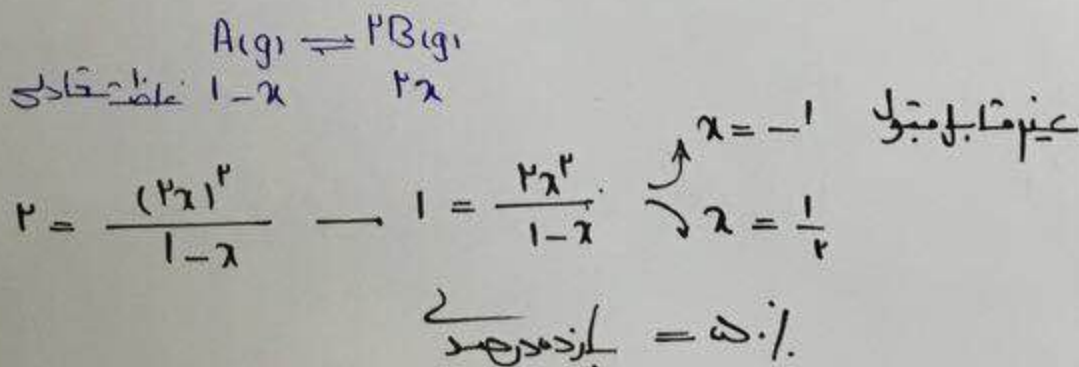 A(g) ⇌ ۲B(g)
غلظت تعادلی ۱-x ۲x
۲ = (۲x)^۲ / ۱-x — ۱ = ۲x^۲ / ۱-x
x = -۱ غیر قابل قبول
x = ۱/۲
بازده درصدی = ۵۰٪